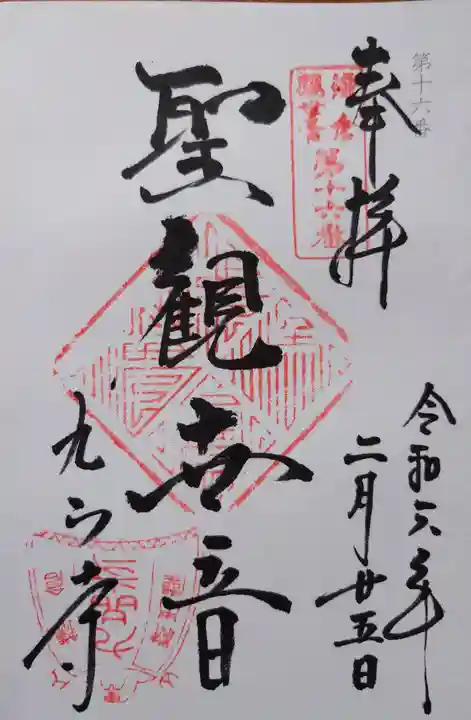 第十六番
奉拝
鎌倉
観音
第十六番
令和六年
二月廿五日
聖観世音
九品寺